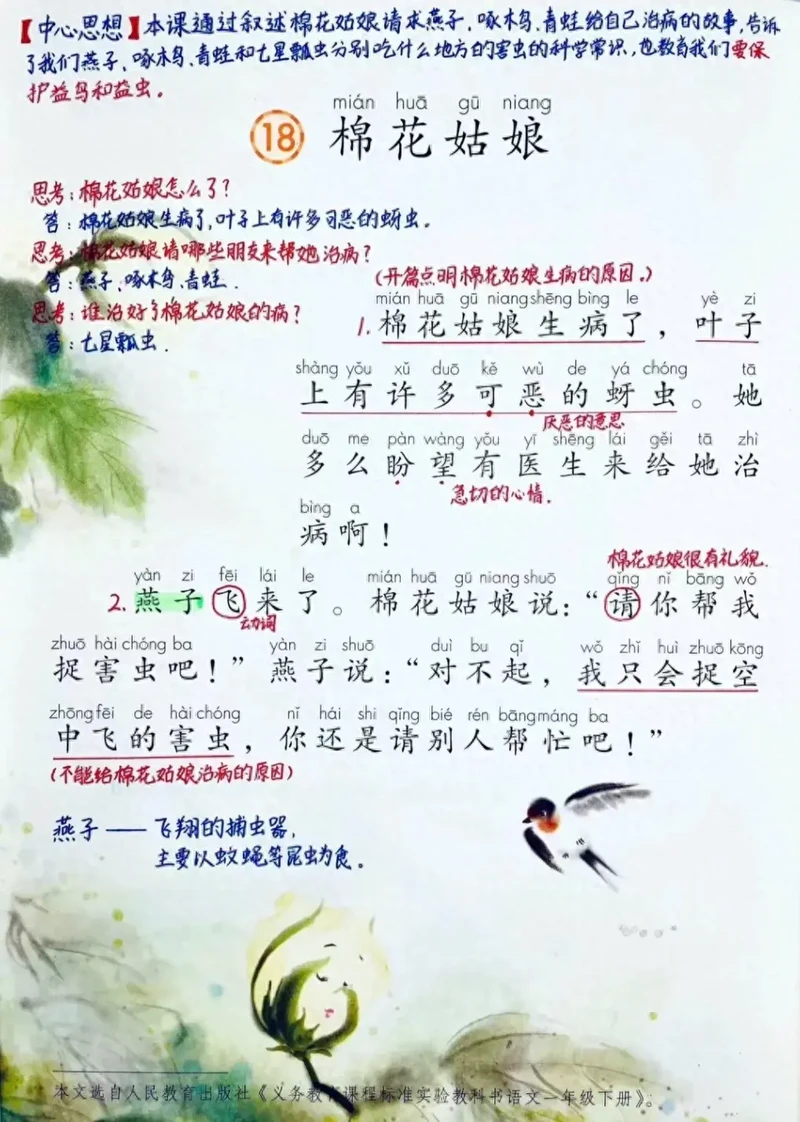 【中心思想】本课通过叙述棉花姑娘请求燕子、啄木鸟、青蛙给自己治病的故事，告诉
了我们燕子、啄木鸟、青蛙和七星瓢虫分别吃什么地方的害虫的科学常识，也教育我们要保
护益鸟和益虫。
mián huā gū niang
18 棉花姑娘
思考：棉花姑娘怎么了？
答：棉花姑娘生病了，叶子上有许多可恶的蚜虫。
思考：棉花姑娘请哪些朋友来帮她治病？
答：燕子、啄木鸟、青蛙．
（开篇点明棉花姑娘生病的原因。）
思考：谁治好了棉花姑娘的病？
答：七星瓢虫．
mián huā gū niang shēng bìng le yè zi
1. 棉花姑娘生病了，叶子
shàng yǒu xǔ duō kě wù de yá chóng tā
上有许多可恶的蚜虫。她
厌恶的意思
duō me pàn wàng yǒu yī shēng lái gěi tā zhì
多么盼望有医生来给她治
急切的心情．
bìng a
病啊！
棉花姑娘很有礼貌．
yàn zi fēi lái le mián huā gū niang shuō qǐng nǐ bāng wǒ
2. 燕子飞来了。棉花姑娘说：“请你帮我
动词
zhuō hài chóng ba yàn zi shuō duì bu qǐ wǒ zhǐ huì zhuō kōng
捉害虫吧！”燕子说：“对不起，我只会捉空
zhōng fēi de hài chóng nǐ hái shi qǐng bié rén bāng máng ba
中飞的害虫，你还是请别人帮忙吧！”
（不能给棉花姑娘治病的原因）
燕子——飞翔的捕虫器，
主要以蚊蝇等昆虫为食．
本文选自人民教育出版社《义务教育课程标准实验教科书语文一年级下册》。